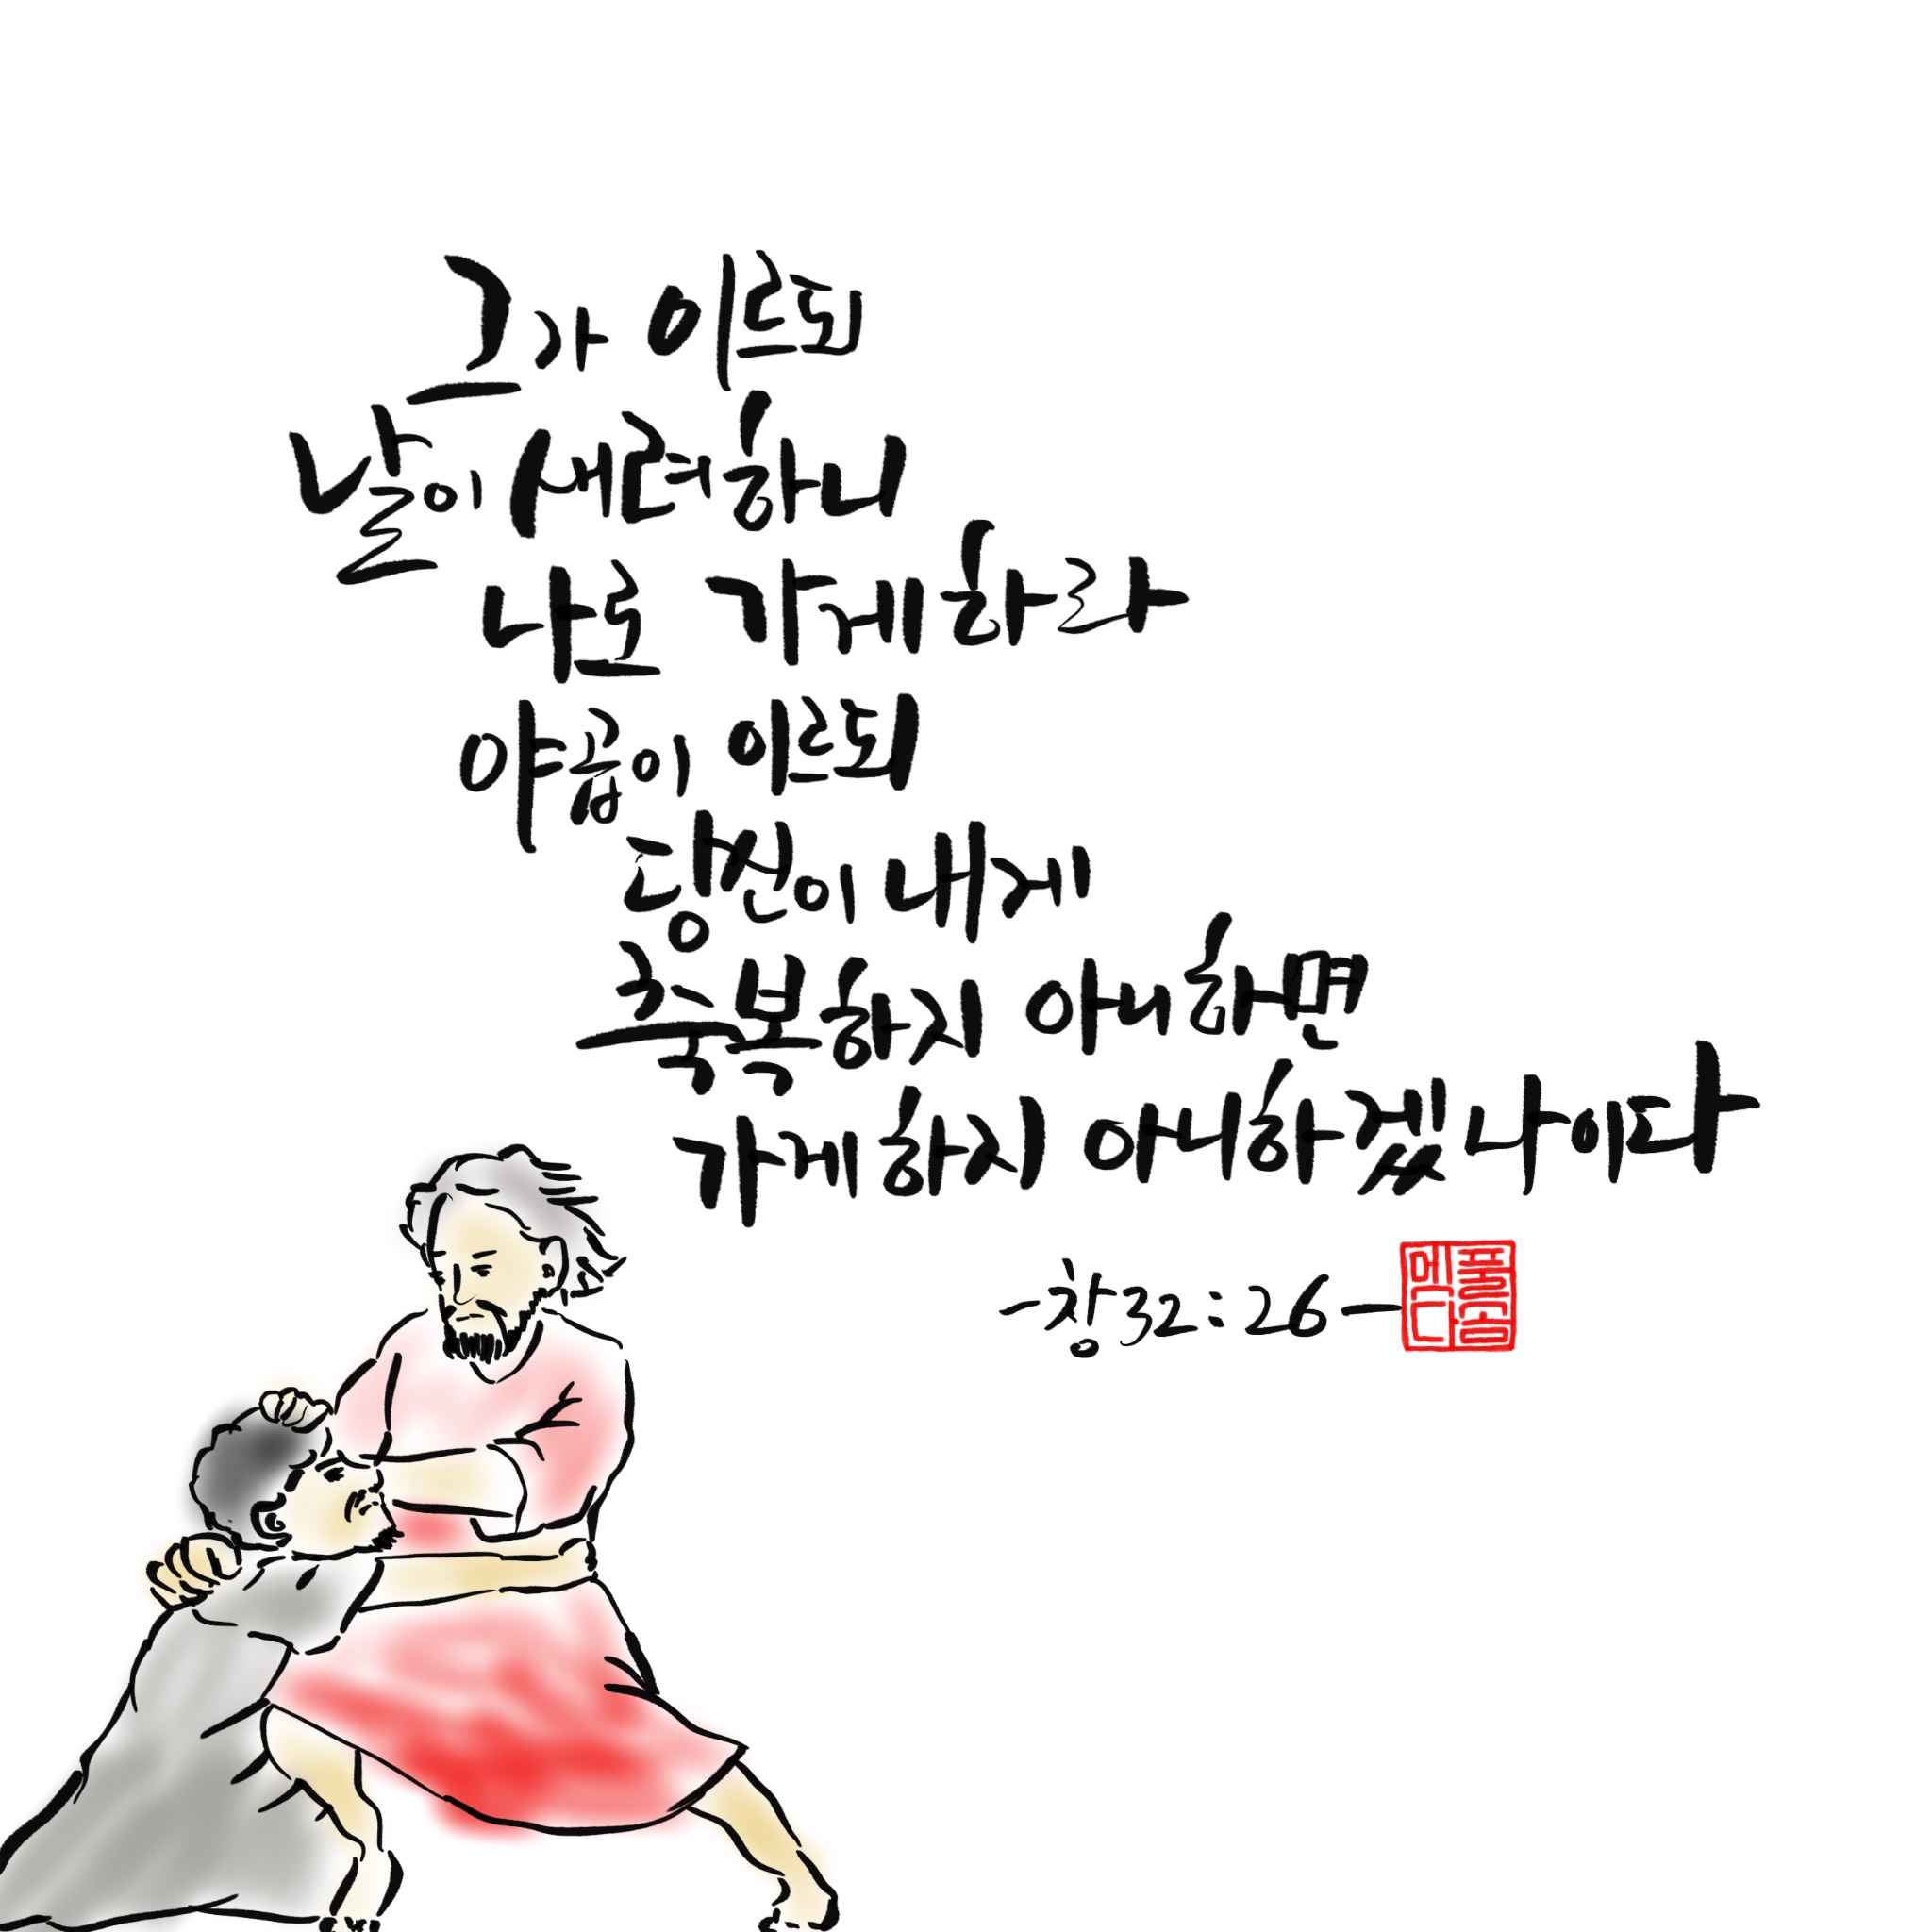 그가 이르되
날이 새려하니
나로 가게하라
야곱이 이르되
당신이 내게
축복하지 아니하면
가게하지 아니하겠나이다
-창32:26-